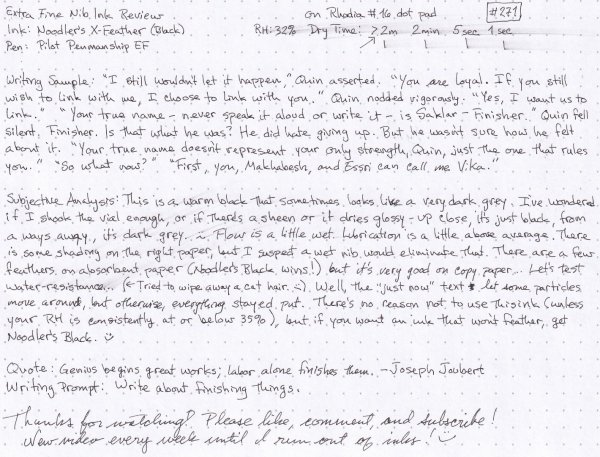 Extra Fine Nib Ink Review
on Rhodia #16 dot pad
#271
Ink: Noodler's X-Feather (Black)
RH: 32% Dry Time: >2m 2min 5sec 1sec
Pen: Pilot Penmanship EF
Writing Sample: "I still wouldn't let it happen," Quin asserted. "You are loyal. If you still
wish to link with me, I choose to link with you." Quin nodded vigorously. "Yes, I want us to
link." "Your true name - never speak it aloud or write it - is Saklar - Finisher." Quin fell
silent. Finisher. Is that what he was? He did hate giving up. But he wasn't sure how he felt
about it. "Your true name doesn't represent your only strength, Quin, just the one that rules
you." "So what now?" "First, you, Makhabesh, and Essri can call me Vika."
Subjective Analysis: This is a warm black that sometimes looks like a very dark grey. I've wondered
if I shook the vial enough, or if there's a sheen or it dries glossy - up close, it's just black, from
a ways away, it's dark grey. Flow is a little wet. Lubrication is a little above average. There
is some shading on the right paper, but I suspect a wet nib would eliminate that. There are a few
feathers on absorbent paper (Noodler's Black wins!) but it's very good on copy paper... Let's test
water-resistance... (← Tried to wipe away a cat hair. <) Well, the "just now" text let some particles
move around, but otherwise, everything stayed put. There's no reason not to use this ink (unless
your RH is consistently at or below 35%), but if you want an ink that won't feather, get
Noodler's Black. :)
Quote: Genius begins great works; labor alone finishes them. - Joseph Joubert
Writing Prompt: Write about finishing things.
Thanks for watching! Please like, comment, and subscribe!
New video every week until I run out of inks! :)